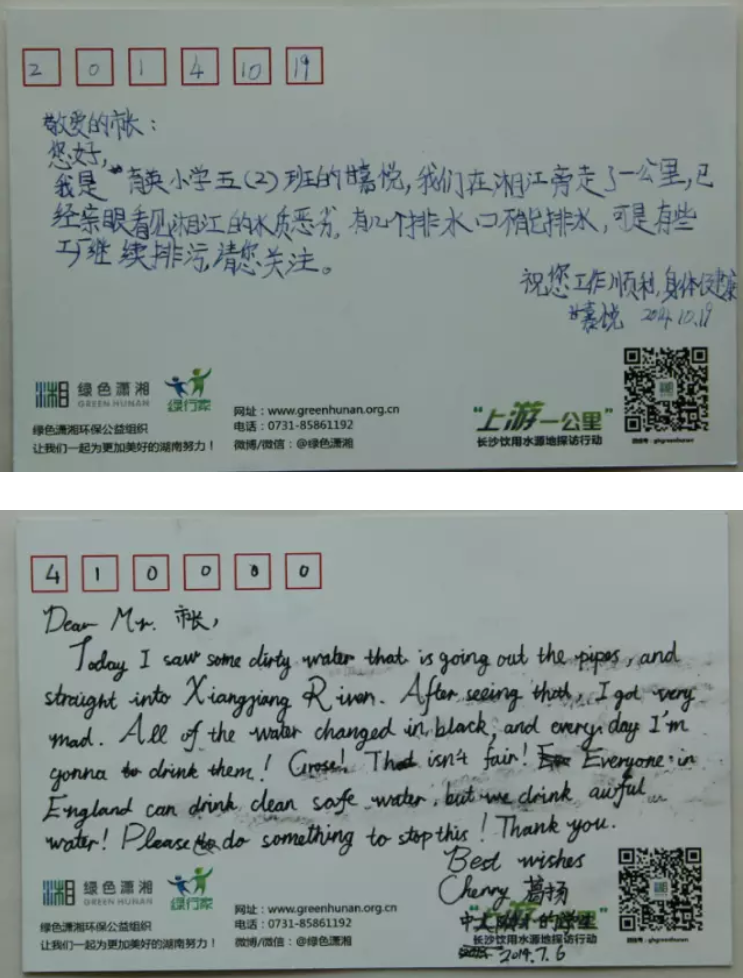 2 0 1 4 10 19
敬爱的市长：
您好，
我是育英小学五(2)班的甘嘉悦，我们在湘江旁走了一公里，已
经亲眼看见湘江的水质恶劣，有几个排水口不能排水，可是有些
工厂继续排污，请您关注。
祝您工作顺利，身体健康
甘嘉悦 2014.10.19
湘 绿色潇湘
GREEN HUNAN
绿行家
绿色潇湘环保公益组织
让我们一起为更加美好的湖南努力！
网址：www.greenhunan.org.cn
电话：0731-85861192
微博/微信：@绿色潇湘
“上游一公里”
长沙饮用水源地探访行动
微信号：ghgreenhunan
4 1 0 0 0 0
Dear Mr. 市长,
Today I saw some dirty water that is going out the pipes, and
straight into Xiangjiang River. After seeing that, I got very
mad. All of the water changed in black, and every day I'm
gonna to drink them! Gross! That isn't fair! Everyone in
England can drink clean safe water, but we drink awful
water! Please do something to stop this! Thank you.
Best wishes
Cherry 葛扬
的学生
2014.7.6
湘 绿色潇湘
GREEN HUNAN
绿行家
绿色潇湘环保公益组织
让我们一起为更加美好的湖南努力！
网址：www.greenhunan.org.cn
电话：0731-85861192
微博/微信：@绿色潇湘
长沙饮用水源地探访行动
微信号：ghgreenhunan